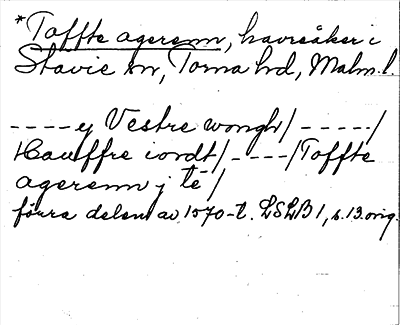 *Toffte agerenn, havreåker i
Stavie sn, Torna hd, Malm. l.
----ej Vestre wongh/-----/
Hauffre iordt/----/Toffte
agerenn j té/
förra delen av 1570-t. LSLB 1, s. 13. orig.